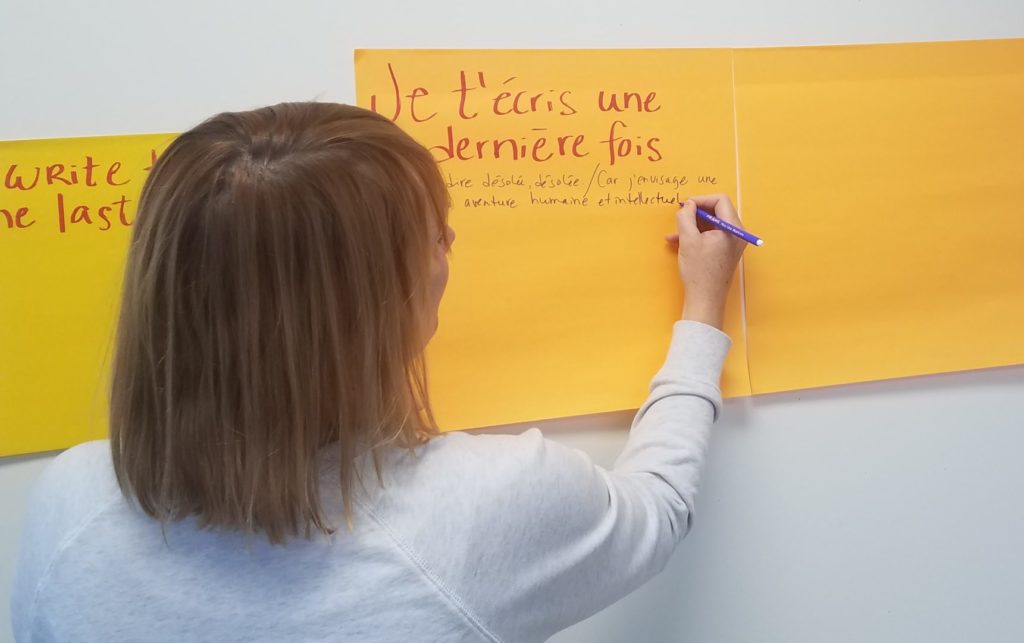 WRITE
last
Je t'écris une
dernière fois
désolée, désolée. / Car j'envisage une
aventure humaine et intellectuel